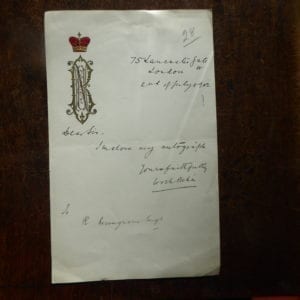 28
75 Lancaster Gate
London W
2nd of July 1902
Dear Sir,
I enclose my autograph
Yours faithfully
To
R Esq